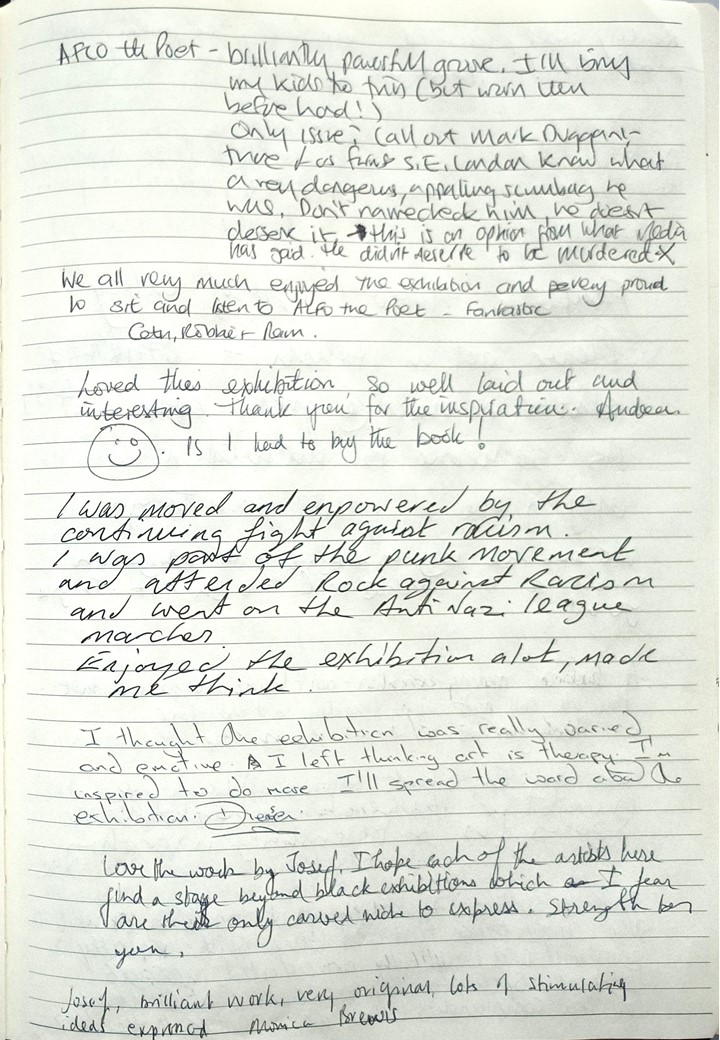 AFLO the Poet - brilliantly powerful grove. I'll bring
my kids to this (but warn them
before hand!)
Only issue; call out Mark Duggan;-
true / as from S.E. London know what
a very dangerous, appalling scumbag he
was. Don't namecheck him, he doesn't
deserve it → this is an opinion from what Media
has said. He didn't deserve to be murdered X
We all very much enjoyed the exhibition and very proud
to sit and listen to ALFO the Poet - Fantastic
Robbie +
Loved this exhibition, so well laid out and
interesting. Thank you for the inspiration. Andrea.
. Ps I had to buy the book!
I was moved and enpowered by the
continuing fight against racism.
I was part of the punk movement
and attended Rock against Racism
and went on the Anti Nazi league
marches
Enjoyed the exhibition alot, made
me think.
I thought the exhibition was really varied
and emotive. I left thinking art is therapy. I'm
inspired to do more. I'll spread the word about the
exhibition.
Love the work by Josef. I hope each of the artists here
find a stage beyond black exhibitions which I fear
are their only carved niche to express. Strength
you.
Josef, brilliant work, very original, lots of stimulating
ideas expressed Monica Brewis